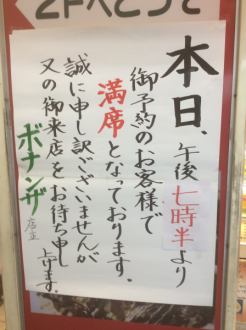 2Fへどうぞ
本日、午後七時半より
御予約のお客様で
満席となっております。
誠に申し訳ございませんが
又の御来店をお待ち申し
上げます。
ボナンザ
店主